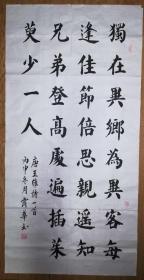 獨在異鄉為異客每
逢佳節倍思親遥知
兄弟登高處遍插茱
萸少一人
唐王維詩一首
丙申冬月霞華书